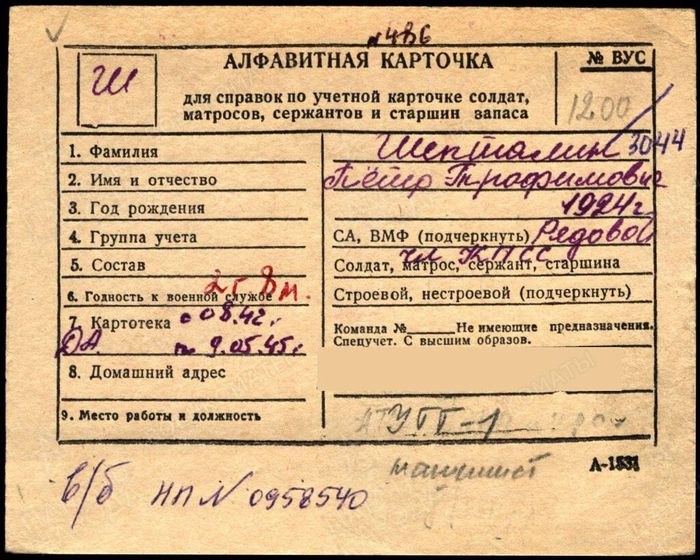 УВБ
АЛФАВИТНАЯ КАРТОЧКА
№ ВУС
Ш
для справок по учетной карточке солдат,
матросов, сержантов и старшин запаса
1200
3044
1. Фамилия
Шепталин
2. Имя и отчество
Пётр Трофимович
3. Год рождения
1924 г
4. Группа учета
СА, ВМФ (подчеркнуть) Рядовой
5. Состав
чл КПСС
Солдат, матрос, сержант, старшина
6. Годность к военной службе
Строевой, нестроевой (подчеркнуть)
2 г 8 м.
7. Картотека с 08.42 г
ДА по 9.05.45 г
Команда № Не имеющие предназначения.
Спецучет. С высшим образов.
8. Домашний адрес
9. Место работы и должность
УТТ-1
машинист
А-1531
в/б НП № 0958540